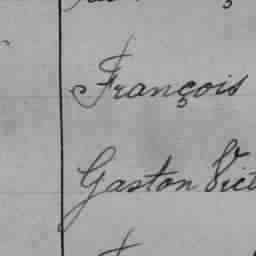 François
Gaston Vict